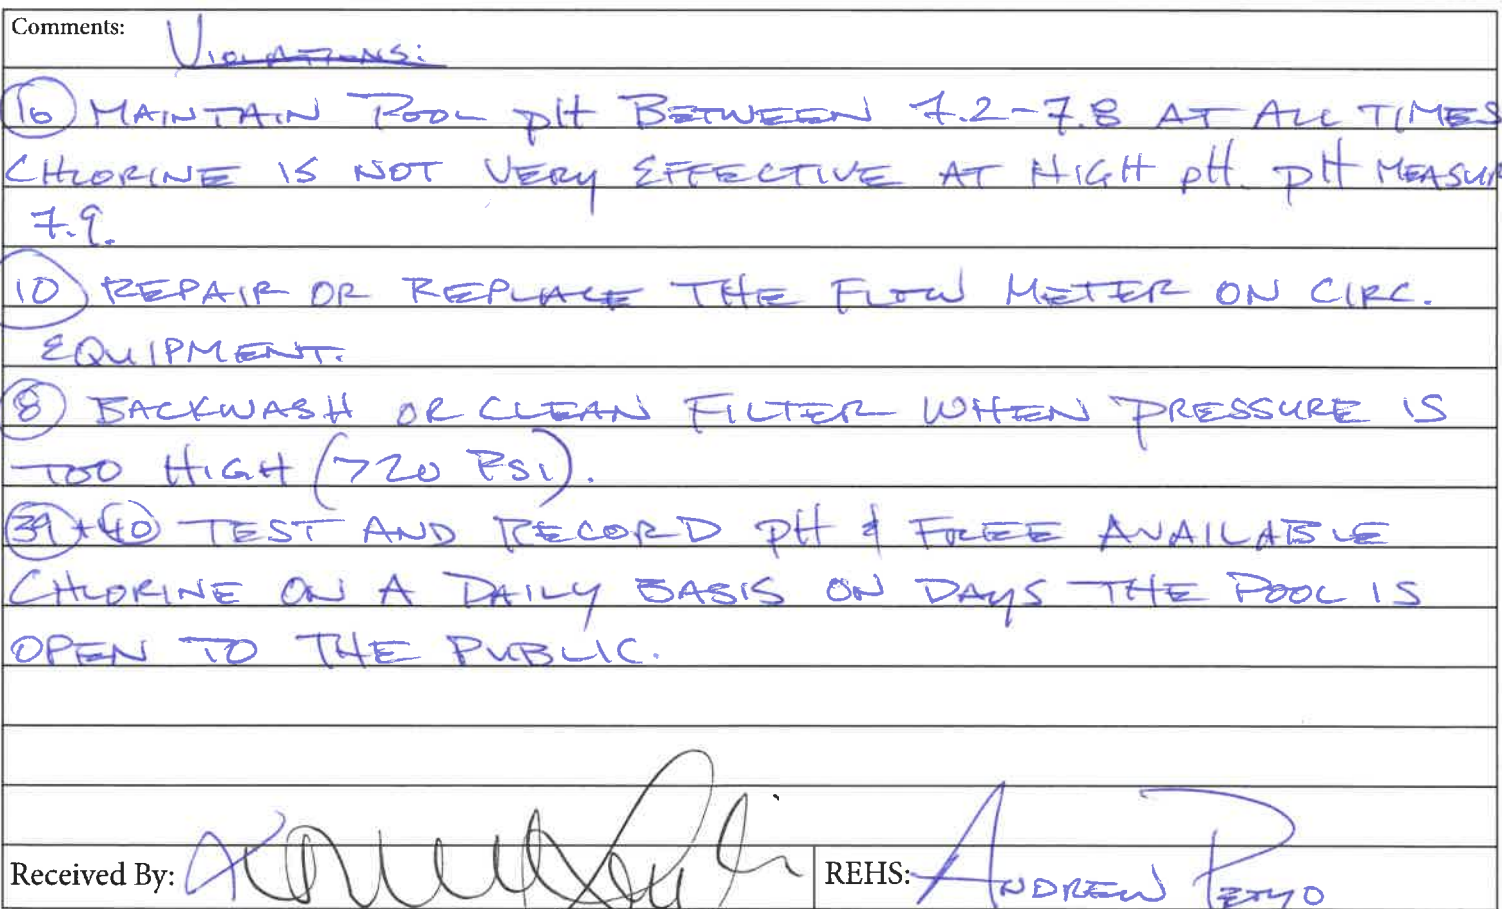 Comments: VIOLATIONS:
16 MAINTAIN POOL pH BETWEEN 7.2-7.8 AT ALL TIMES
CHLORINE IS NOT VERY EFFECTIVE AT HIGH pH. pH MEASUR
7.9.
10 REPAIR OR REPLACE THE FLOW METER ON CIRC.
EQUIPMENT.
8 BACKWASH OR CLEAN FILTER WHEN PRESSURE IS
TOO HIGH (>20 PSI).
39+40 TEST AND RECORD pH & FREE AVAILABLE
CHLORINE ON A DAILY BASIS ON DAYS THE POOL IS
OPEN TO THE PUBLIC.
Received By: REHS: ANDREW